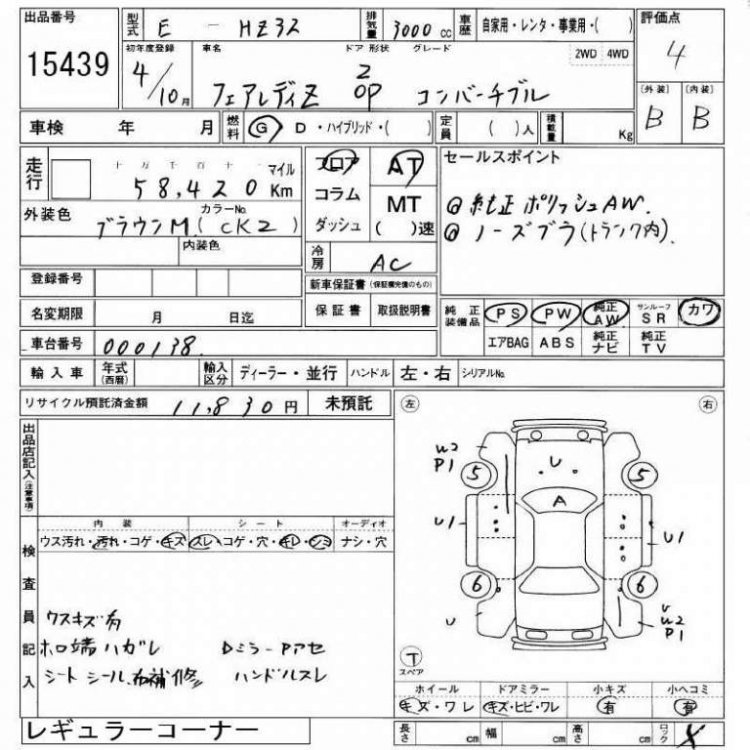 出品番号 型式 E - HZ32 排気量 3000 cc 車歴 自家用・レンタ・事業用・( ) 評価点
15439 4
初年度登録 車名 ドア 形状 グレード 2WD 4WD
4/10月 フェアレディZ 2 OP コンバーチブル
[外装] [内装]
B B
車検 年 月 燃料 G D・ハイブリッド・( ) 定員 ( )人 積載量 Kg
走行 十万千百十一 マイル
58,420 Km
フロア AT
コラム MT
ダッシュ ( )速
セールスポイント
◎純正 ポリッシュAW.
◎ノーズブラ(トランク内).
外装色 カラーNo.
ブラウンM (CK2)
内装色
冷房 AC
登録番号 新車保証書 (保証欄完備のもの)
名変期限 月 日迄 保証書 取扱説明書
純正装備品 PS PW 純正AW サンルーフSR カワ
エアBAG ABS 純正ナビ 純正TV
車台番号 000138.
輸入車 年式(西暦) 輸入区分 ディーラー・並行 ハンドル 左・右 シリアルNo.
リサイクル預託済金額 11,830円 未預託
左 右
出品店記入(注意事項)
U2 P1 5 U 5
A
U1 U1
6 6
U U U2 P1
T スペア
検査員記入
内装 シート オーディオ
ウス汚れ・汚れ・コゲ・キズ スレ・コゲ・穴・キレ・シミ ナシ・穴
ウスキズ有
ホロ端ハガレ DミラーPアセ
シート シール、布補修 ハンドルスレ
ホイール ドアミラー 小キズ 小ヘコミ
キズ・ワレ キズ・ヒビ・ワレ 有 有
レギュラーコーナー
長さ cm 幅 cm 高さ cm ロック X